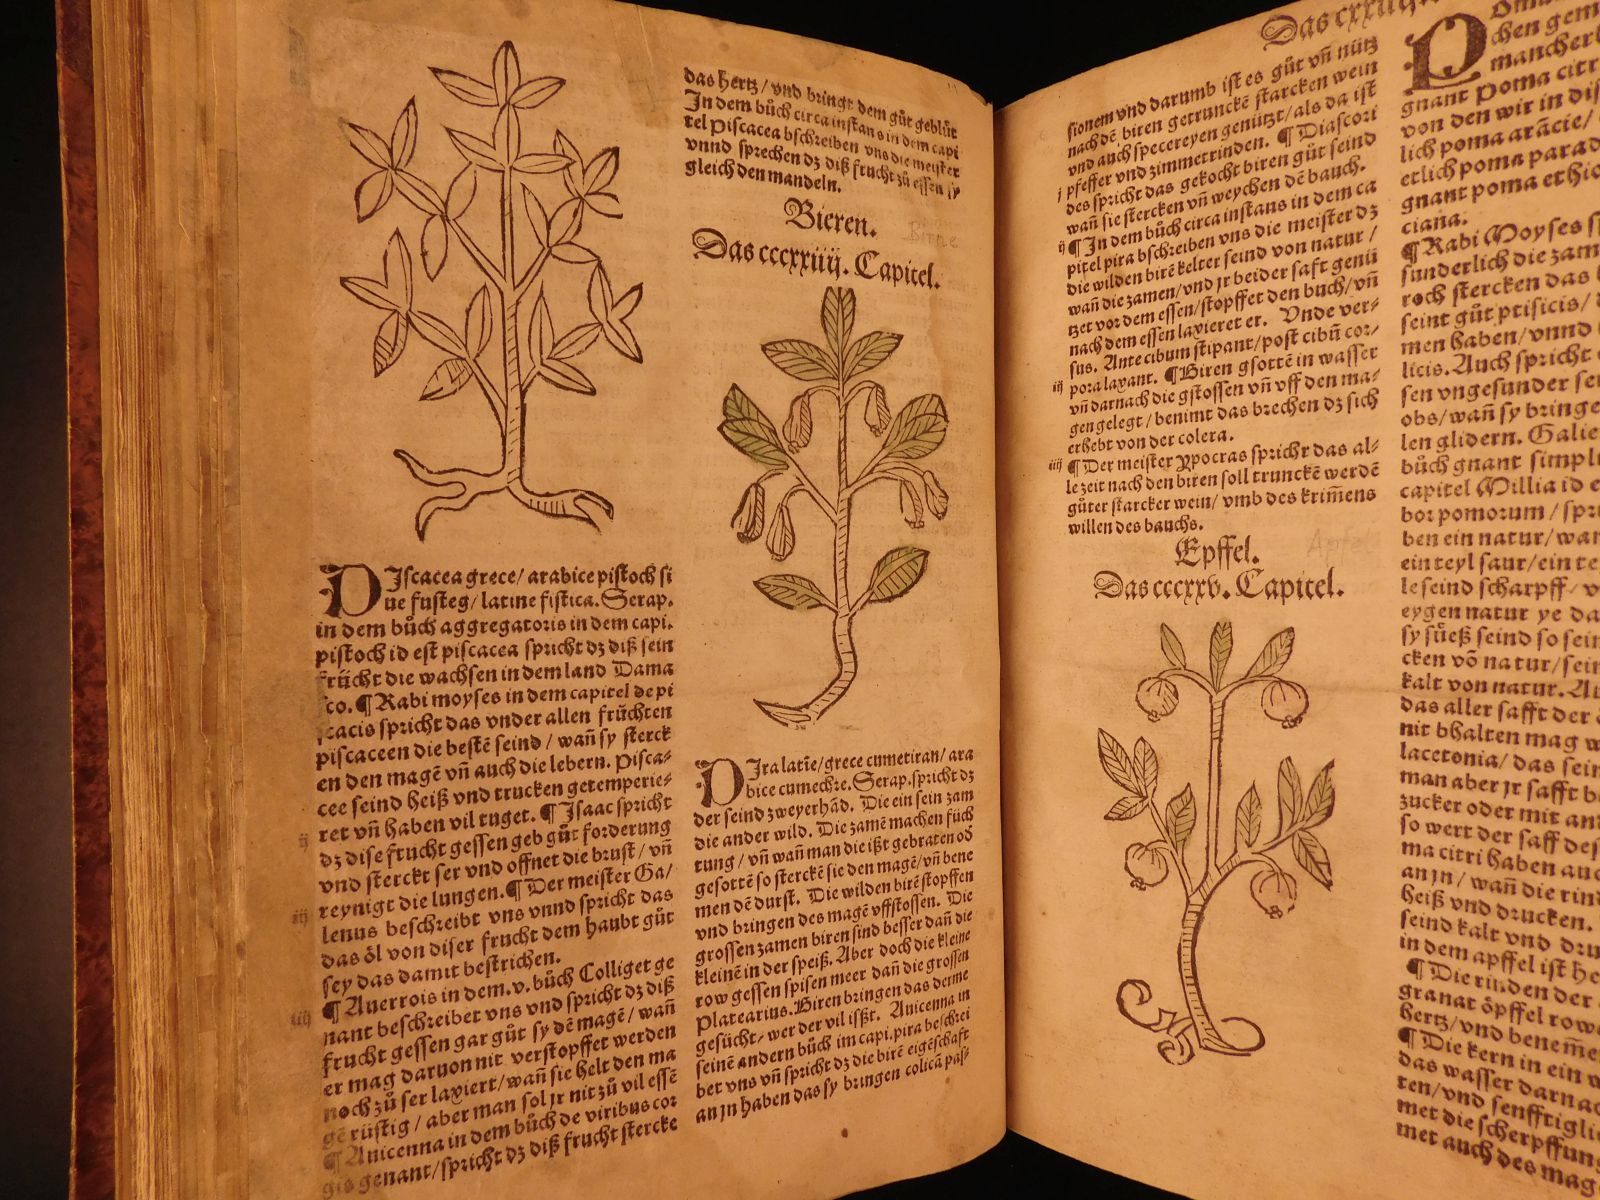 PIscacea grece/ arabice pistoch si
ue fusteg/ latine fistica. Serap.
in dem bůch aggregatoris in dem capi.
pistoch id est piscacea spricht dz diß sein
frücht die wachsen in dem land Dama
sco. ¶ Rabi moyses in dem capitel de pi
scacis spricht das vnder allen früchten
piscaceen die bestē seind/ wañ sy sterck
en den magē vñ auch die lebern. Pisca⸗
cee seind heiß vnd trucken getemperie⸗
ret vñ haben vil tuget. ¶ Isaac spricht
ij dz dise frucht gessen geb gůt forderung
vnd sterckt ser vnd offnet die brust/ vñ
iij reynigt die lungen. ¶ Der meister Ga/
lenus beschreibt vns vnnd spricht das
das öl von diser frucht dem haubt gůt
sey das damit bestrichen.
iiij ¶ Auerrois in dem .v. bůch Colliget ge
nant beschreibet vns vnd spricht dz diß
frucht gessen gar gůt sy dē magē/ wañ
er mag daruon nit verstopffet werden
noch zů ser laxiert/ wañ sie helt den ma
gē rüstig/ aber man sol jr nit zů vil essē
¶ Anicenna in dem bůch de viribus cor
gis genant/ spricht dz diß frucht stercke
das hertz/ vnd bringt dem gůt geblůt
In dem bůch circa instans in dem capi
tel Piscacea bschreiben vns die meister
vnnd sprechen dz diß frucht zů essen sy
gleich den mandeln.
Bieren.
Birne
Das cccxxiiij. Capitel.
PIra latīe/ grece cumetiran/ ara
bice cumechre. Serap. spricht dz
der seind zweyerhād. Die ein sein zam
die ander wild. Die zamē machen füch
tung/ vñ wañ man die ißt gebraten od̄
gesottē so sterckē sie den magē/ vñ bene
men dē durst. Die wilden birē stopffen
vnd bringen des magē vffstossen. Die
grossen zamen biren sind besser dañ die
kleinē in der speiß. Aber doch die kleine
row gessen spisen meer dañ die grossen
Platearius. Biren bringen das derme
gesücht/ wer der vil isßt. Anicenna in
seinē andern bůch im capi. pira beschrei
bet vns vñ spricht dz die birē eigēschafft
an jn haben das sy bringen colicā pas⸗
Das cxxiiij.
sionem vnd darumb ist es gůt vñ nütz
nach dē biren getrunckē starcken wein
vnd auch specereyen genützt/ als da ist
pfeffer vnd zimmetrinden. ¶ Diascori
j des spricht das gekocht biren gůt seind
wañ sie stercken vñ weychen dē bauch.
ij ¶ In dem bůch circa instans in dem ca
pitel pira bschreiben vns die meister dz
die wilden birē kelter seind von natur/
wañ die zamen/ vnd jr beider saft genü
tzet vor dem essen/ stopffet den buch/ vñ
nach dem essen laxieret er. Vnde ver⸗
sus. Ante cibum stipant/ post cibū cor⸗
iij pora laxant. ¶ Biren gsottē in wasser
vñ darnach die gstossen vñ vff den ma⸗
gen gelegt/ benimt das brechen dz sich
erhebt von der colera.
iiij ¶ Der meister Ypocras spricht das al⸗
le zeit nach den biren soll trunckē werdē
gůter starcker wein/ vmb des krim̄ens
willen des bauchs.
Epffel.
Apfel
Das cccxxv. Capitel.
chen gem
mancherl
gnant Poma citr
von den wir in dis
lich poma arācie/
etlich poma parad
gnant poma ethio
ciana.
¶ Rabi Moyses s
sunderlich die zam
roch stercken das
seint gůt ptisicis/
men haben/ vnnd
licis. Auch spricht
sen vngesunder se
obs/ wañ sy bringe
len glidern. Galie
bůch gnant simpli
capitel Millia id e
bor pomorum/ spr
ben ein natur/ wan
ein teyl saur/ ein te
le seind scharpff/ v
eygen natur ye da
sy süeß seind so sein
cken vō natur/ sein
kalt von natur. Au
das aller safft der
nit bhalten mag w
lacetonia/ das sein
man aber jr safft b
zucker oder mit an
so wert der saff des
ma citri haben auc
an jn/ wañ die rind
heiß vnd drucken.
seind kalt vnd dru
in dem apffel ist he
¶ Die rinden der
granat öpffel row
hertz/ vnd benem̄e
¶ Die kern in ein w
das wasser darnac
ten/ vnd senfftigli
met die scherpffung
met auch des mag